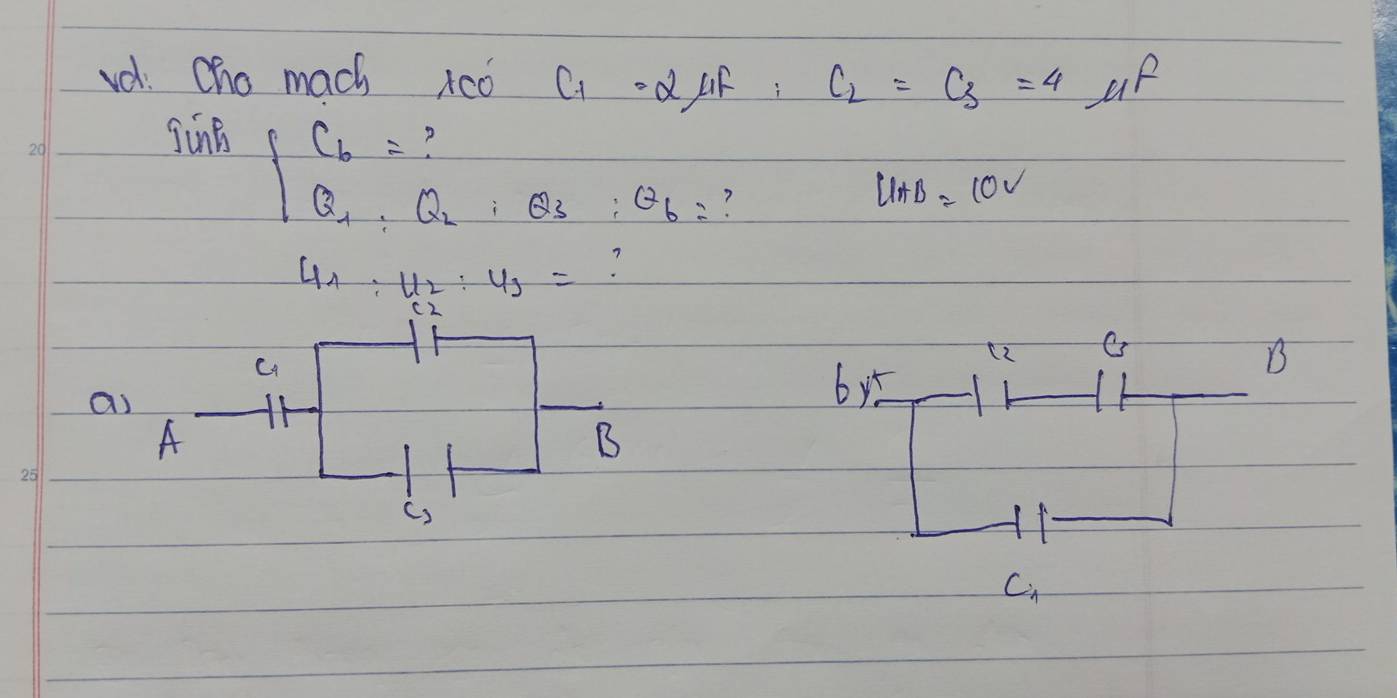 vd: Cho mạch có C1 = 2 μF ; C2 = C3 = 4 μF
20
Tính { Cb = ?
Q1 ; Q2 ; Q3 ; Qb = ? UAB = 10V
U1 ; U2 ; U3 = ?
C2
C1
C2 C3 B
a) A B
b)
25
C3
C1